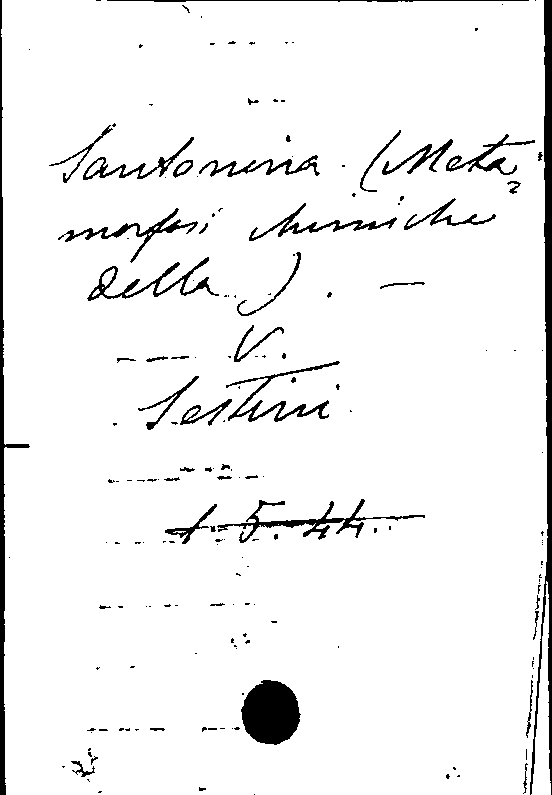 Santonina (Meta=
morfosi chimiche
della). —
V.
Sestini
1.5.44.